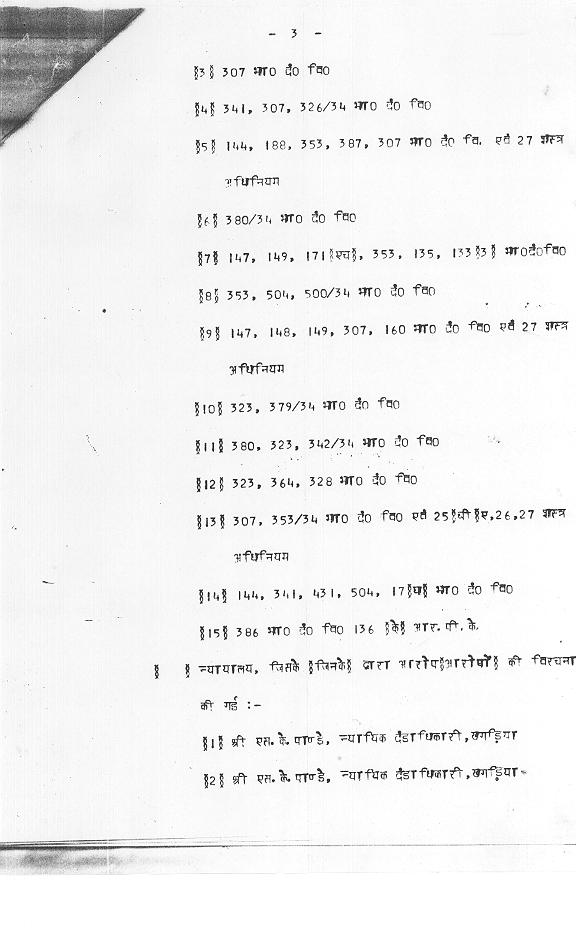 - 3 -
§3§ 307 भा0 दं0 वि0
§4§ 341, 307, 326/34 भा0 दं0 वि0
§5§ 144, 188, 353, 387, 307 भा0 दं0 वि. एवं 27 शस्त्र
अधिनियम
§6§ 380/34 भा0 दं0 वि0
§7§ 147, 149, 171§एच§, 353, 135, 133§3§ भा0दं0वि0
§8§ 353, 504, 500/34 भा0 दं0 वि0
§9§ 147, 148, 149, 307, 160 भा0 दं0 वि0 एवं 27 शस्त्र
अधिनियम
§10§ 323, 379/34 भा0 दं0 वि0
§11§ 380, 323, 342/34 भा0 दं0 वि0
§12§ 323, 364, 328 भा0 दं0 वि0
§13§ 307, 353/34 भा0 दं0 वि0 एवं 25§बी§ए,26,27 शस्त्र
अधिनियम
§14§ 144, 341, 431, 504, 17 भा0 दं0 वि0
§15§ 386 भा0 दं0 वि0 136 §के§ आर.पी.के.
§ § न्यायालय, जिसके §जिनके§ द्वारा आरोप§आरोपों§ की विरचना
की गई :-
§1§ श्री एस.के.पाण्डे, न्यायिक दंडाधिकारी,खगड़िया
§2§ श्री एस.के.पाण्डे, न्यायिक दंडाधिकारी,खगड़िया